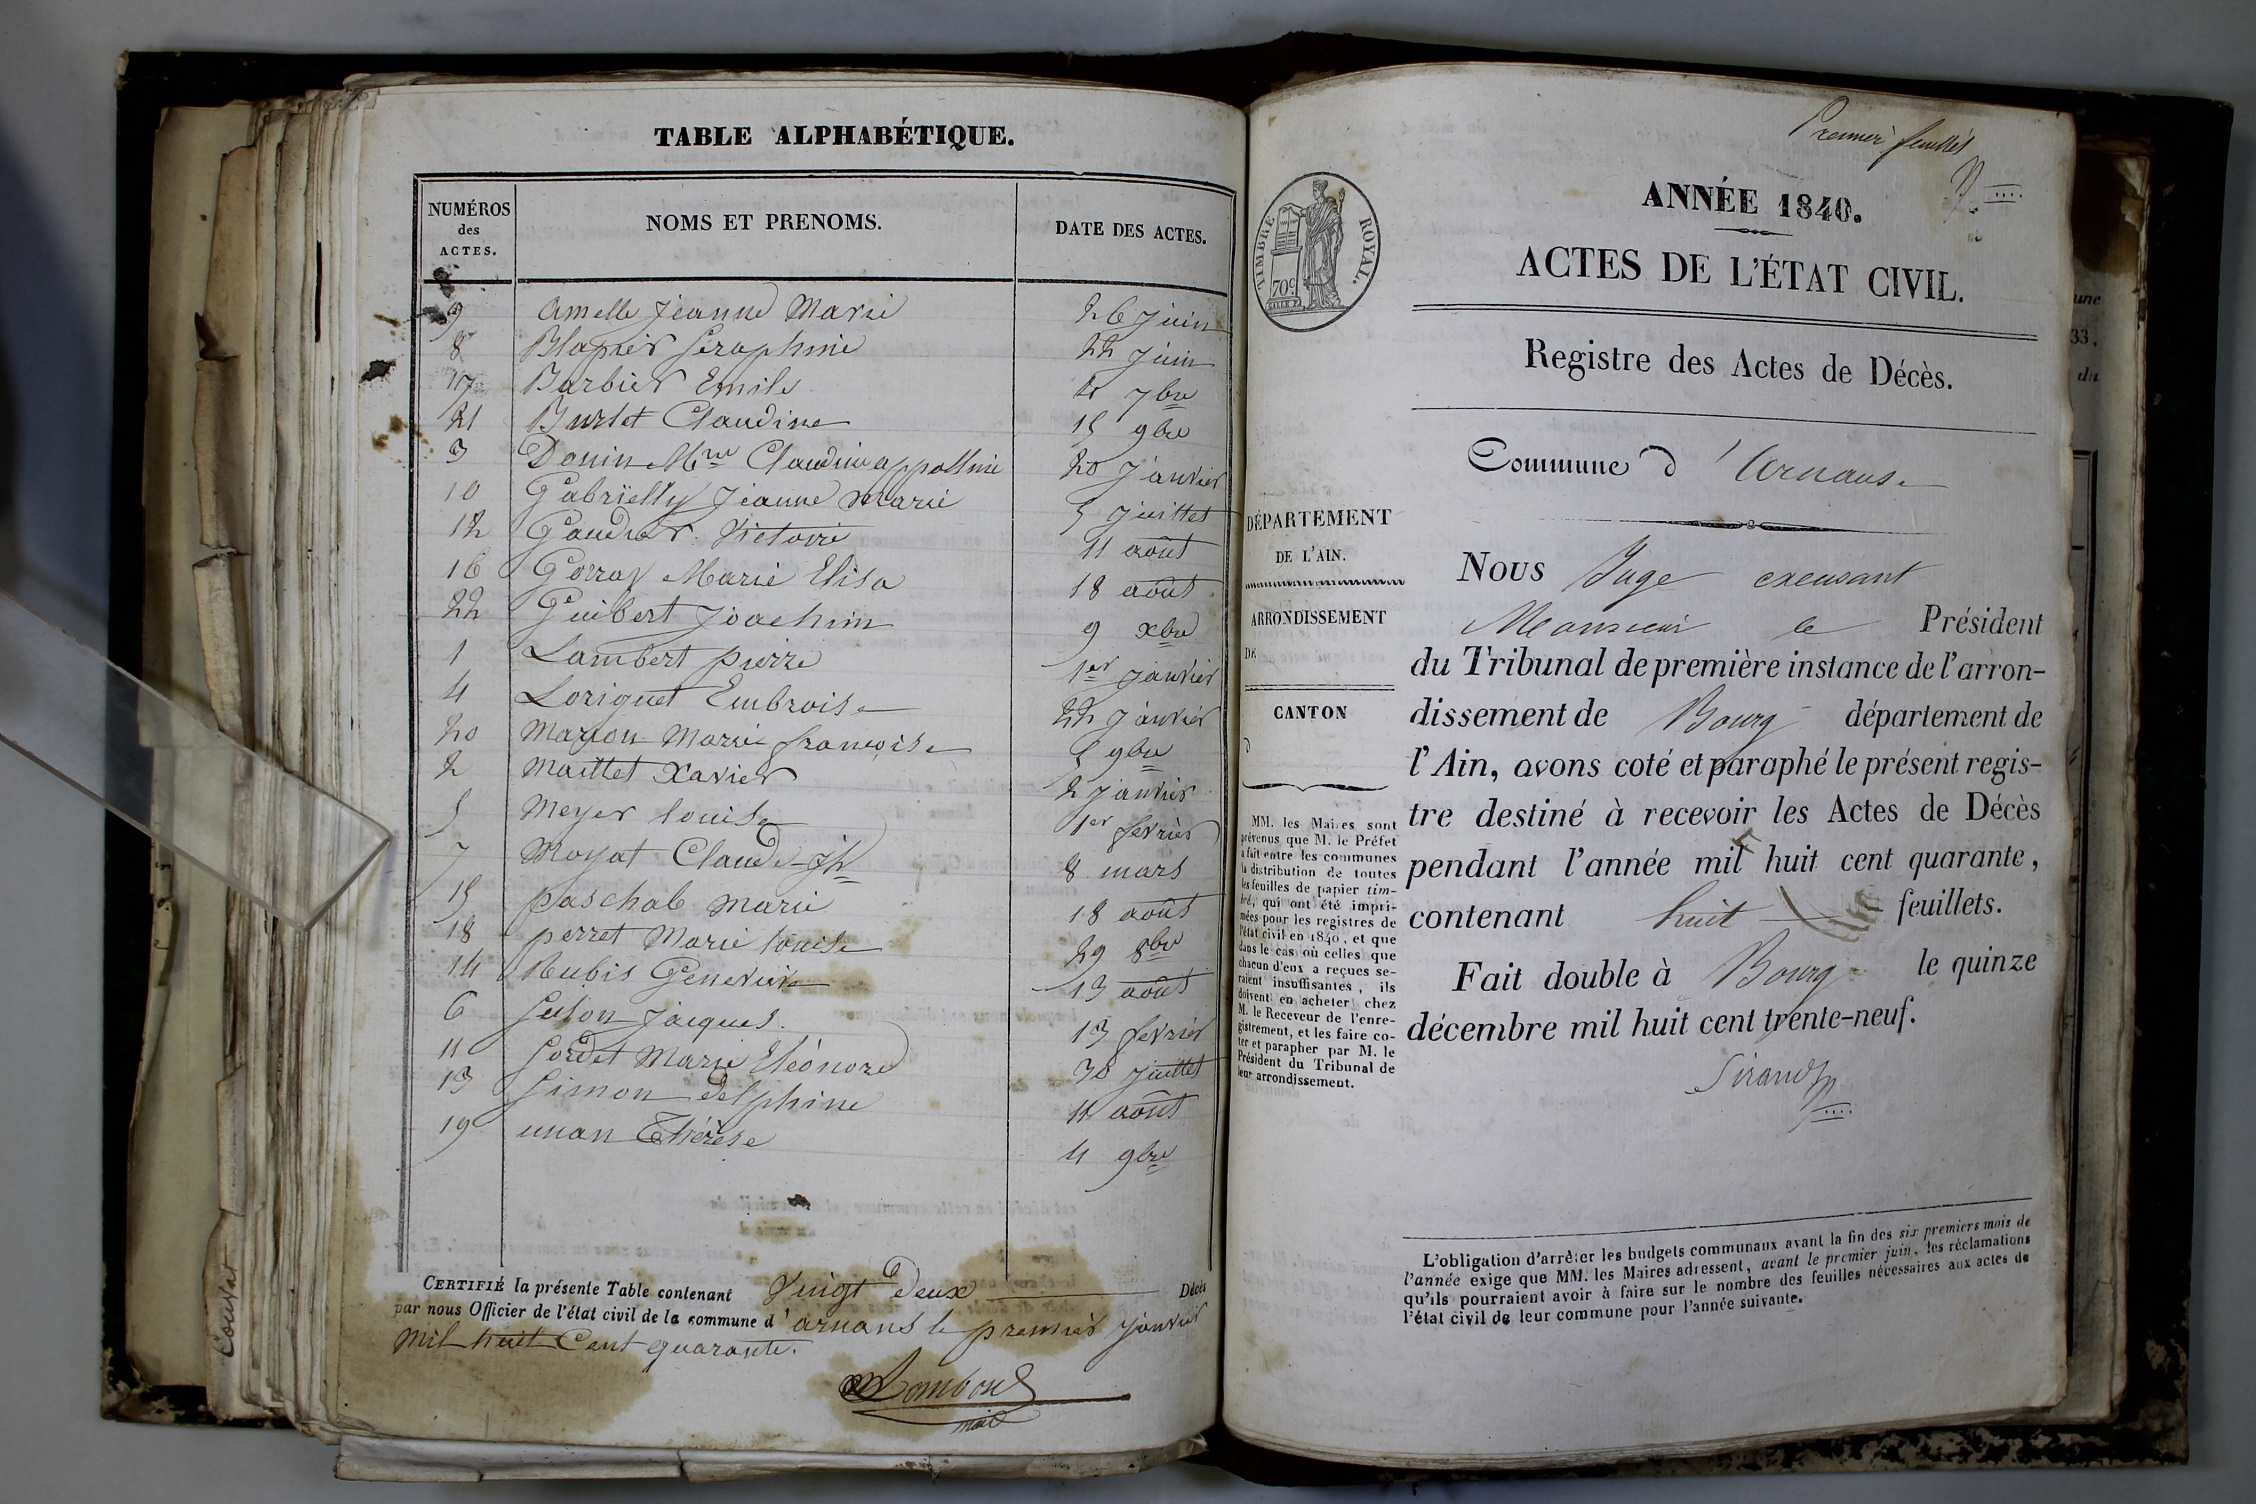 TABLE ALPHABÉTIQUE.
NUMÉROS des ACTES. NOMS ET PRENOMS. DATE DES ACTES.
9 Amelle Jeanne Marie 26 juin
8 Séraphine 22 juin
17 Barbier Emile 2 7bre
21 Burlet Claudine 15 9bre
3 Donin Mie Claudine appolline 20 janvier
10 Gabrielly Jeanne Marie 5 juillet
12 Gaudier Victoire 11 août
16 Gorray Marie Elisa 18 août
22 Guibert Joachim 9 xbre
1 Lambert pierre 1er janvier
4 Loriguet Embroise 22 janvier
20 Marion Marie françoise 5 9bre
2 Maillet Xavier 2 janvier
5 Meyer louise 1er fevrier
7 Moyat Claude Jh 8 mars
15 paschal Marie 18 août
18 perret Marie louise 29 8bre
14 Rubis Genevieve 13 août
6 Jacques 13 fevrier
11 Sordet Marie Eléonore 30 juillet
13 Simon delphine 11 août
19 unan Thérèse 4 9bre
CERTIFIÉ la présente Table contenant Vingt deux Décès
par nous Officier de l'état civil de la commune d' arnans le premier janvier
mil huit Cent quarante.
maire
Couvat
Premier feuillet
ANNÉE 1840.
TIMBRE ROYAL.
70c
ACTES DE L'ÉTAT CIVIL.
Registre des Actes de Décès.
Commune d'Arnans.
DÉPARTEMENT
DE L'AIN.
ARRONDISSEMENT
DE
CANTON
d
MM. les Maires sont
prévenus que M. le Préfet
a fait entre les communes
la distribution de toutes
les feuilles de papier tim-
bré, qui ont été impri-
mées pour les registres de
l'état civil en 1840, et que
dans le cas où celles que
chacun d'eux a reçues se-
raient insuffisantes, ils
doivent en acheter chez
M. le Receveur de l'enre-
gistrement, et les faire co-
ter et parapher par M. le
Président du Tribunal de
leur arrondissement.
Nous Juge excusant
Monsieur le Président
du Tribunal de première instance de l'arron-
dissement de Bourg département de
l'Ain, avons coté et paraphé le présent regis-
tre destiné à recevoir les Actes de Décès
pendant l'année mil huit cent quarante,
contenant huit feuillets.
Fait double à Bourg le quinze
décembre mil huit cent trente-neuf.
Sirand
L'obligation d'arrêter les budgets communaux avant la fin des six premiers mois de
l'année exige que MM. les Maires adressent, avant le premier juin, les réclamations
qu'ils pourraient avoir à faire sur le nombre des feuilles nécessaires aux actes de
l'état civil de leur commune pour l'année suivante.
une
33.
du